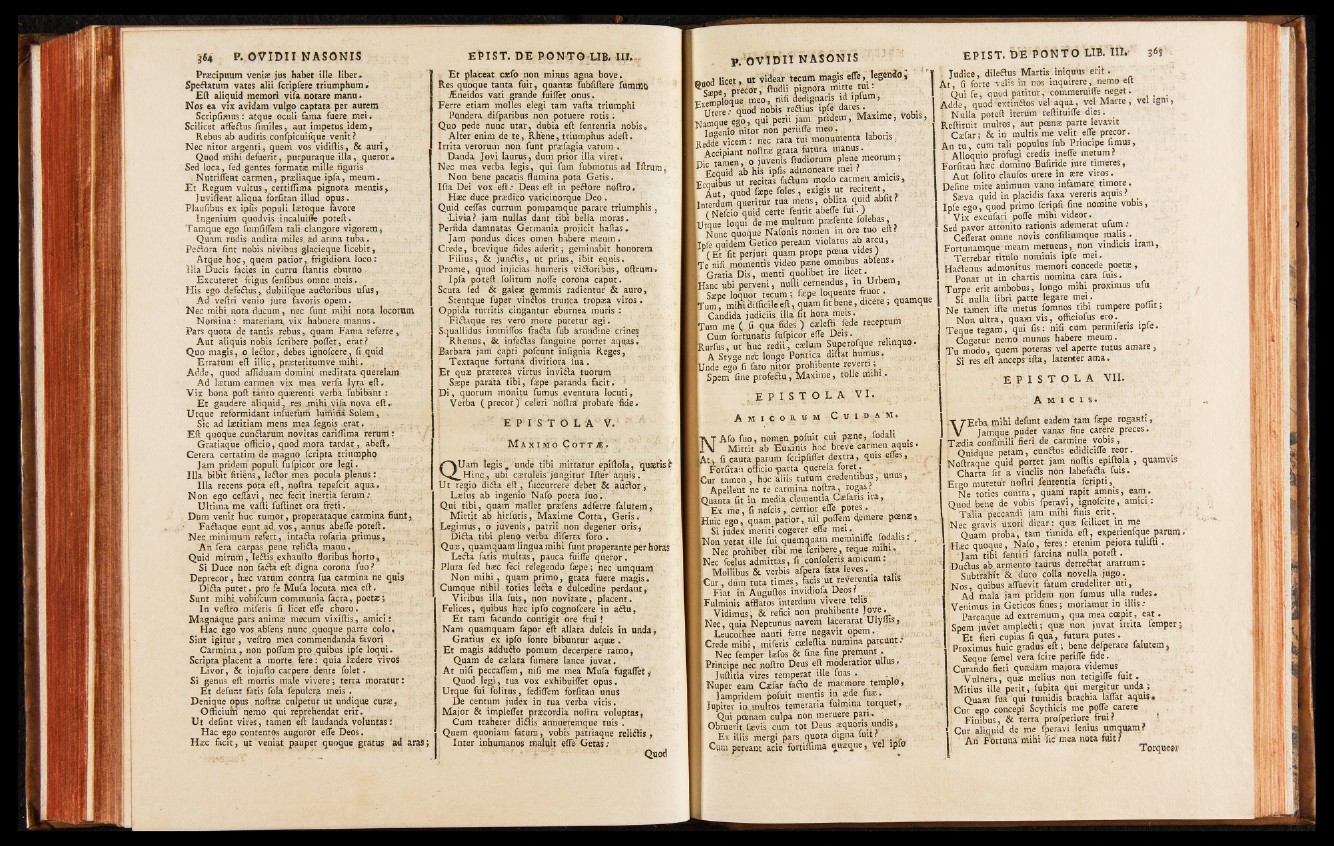 364 P. OVIDII NASONIS
Præcipuum veniæ jus habet ille liber.
Spectatum vates alii scripsere triumphum.
Est aliquid memori visa notare manu.
Nos ea vix avidam vulgo captata per aurem
Scripsimus: atque oculi fama fuere mei.
Scilicet affectus similes, aut impetus idem,
Rebus ab auditis conspicuisque venit?
Nec nitor argenti, quem vos vidistis, & auri,
Quod mihi defuerit, purpuraque illa, queror.
Sed loca, sed gentes formatæ mille figuris
Nutrissent carmen, præliaque ipsa, meum.
Et Regum vultus, certissima pignora mentis,
Juvissent aliqua forsitan illud opus.
Plausibus ex ipsis populi lætoque favore
Ingenium quodvis incaluisse potest.
Tamque ego sumsissem tali clangore vigorem,
Quam rudis audita miles ad arma tuba.
Pectora sint nobis nivibus glacieque licebit,
Atque hoc, quem patior, frigidiora loco:
Illa Ducis facies in curru stantis eburno
Excuteret frigus sensibus omne meis.
His ego defectus, dubiisque auctoribus usus,
Ad vestri venio jure favoris opem.
Nec mihi nota ducum, nec sunt mihi nota locorum
Nomina: materiam vix habuere manus.
Pars quota de tantis rebus, quam Fama referre,
Aut aliquis nobis scribere posset, erat?
Quo magis, o lector, debes ignoscere, si quid
Erratum est illic, præteritumve mihi.
Adde, quod assiduam domini meditata querelam
Ad lætum carmen vix mea versa lyra est.
Vix bona post tanto quærenti verba subibant:
Et gaudere aliquid, res mihi visa nova est.
Utque reformidant insuetum lumina Solem,
Sic ad lætitiam mens mea segnis erat.
Est quoque cunctarum novitas carissima rerum:
Gratiaque officio, quod mora tardat, abest.
Cetera certatim de magno scripta triumpho
Jam pridem populi suspicor ore legi.
Illa bibit sitiens, lector mea pocula plenus:
Illa recens pota est, nostra tepescit aqua.
Non ego cessavi, nec fecit inertia serum:
Ultima me vasti sustinet ora freti.
Dum venit huc rumor, properataque carmina fiunt,
Factaque eunt ad vos, annus abesse potest.
Nec minimum refert, intacta rosaria primus,
An sera carpas pene relicta manu.
Quid mirum, lectis exhausto floribus horto,
Si Duce non facta est digna corona suo?
Deprecor, hæc vatum contra sua carmina ne quis
Dicta putet. pro se Musa locuta mea est.
Sunt mihi vobiscum communia sacra, poetæ;
In vestro miseris si licet esse choro.
Magnaque pars animæ mecum vixistis, amici:
Hac ego vos absens nunc quoque parte colo.
Sint igitur, vestro mea commendanda favori
Carmina, non possum pro quibus ipse loqui.
Scripta placent a morte fere: quia lædere vivos
Livor, & injusto carpere dente solet.
Si genus est mortis male vivere; terra moratur:
Et desunt fatis sola sepulcra meis.
Denique opus nostræ culpetur ut undique curæ,
Officium nemo qui reprehendat erit.
Ut desint vires, tamen est laudanda voluntas:
Hac ego contentos auguror esse Deos.
Hæc facit, ut veniat pauper quoque gratus ad aras;
EPIST. DE PONTO LIB. III.
Et placeat cæso non minus agna bove.
Res quoque tanta fuit, quantæ subsistere summo
Æneidos vati grande fuisset onus.
Ferre etiam molles elegi tam vasta triumphi
Pondera disparibus non potuere rotis:
Quo pede nunc utar, dubia est sententia nobis.
Alter enim de te, Rhene, triumphus adest.
Irrita verorum non sunt præsagia vatum.
Danda Jovi laurus, dum prior illa viret.
Nec mea verba legis, qui sum submotus ad Istrum,
Non bene pacatis flumina pota Getis.
Ista Dei vox est: Deus est in pectore nostro.
Hæc duce prædico vaticinorque Deo.
Quid cessas currum pompamque parare triumphis,
Livia? jam nullas dant tibi bella moras.
Perfida damnatas Germania projicit hastas.
Jam pondus dices omen habere meum.
Crede, brevique fides aderit; geminabit honorem
Filius, & junctis, ut prius, ibit equis.
Prome, quod injicias humeris victoribus, ostrum.
Ipsa potest solitum nosse corona caput.
Scuta sed & galeæ gemmis radientur & auro,
Stentque super vinctos trunca tropæa viros.
Oppida turritis cingantur eburnea muris:
Fictaque res vero more putetur agi.
Squallidus immissos fracta sub arundine crines
Rhenus, & infectas sanguine portet aquas.
Barbara jam capti poscunt insignia Reges,
Textaque fortuna divitiora sua.
Et quæ præterea virtus invicta tuorum
Sæpe parata tibi, sæpe paranda facit.
Di, quorum monitu sumus eventura locuti,
Verba (precor) celeri nostra probate fide.
EPISTOLA V.
MAXIMO COTTÆ.
QUam legis, unde tibi mittatur epistola, quæris?
Hinc, ubi cæruleis jungitur Ister aquis.
Ut regio dicta est, succurrere debet & auctor,
Læsus ab ingenio Naso poeta suo.
Qui tibi, quam mallet præsens adferre salutem,
Mittit ab hirsutis, Maxime Cotta, Getis.
Legimus, o juvenis, patrii non degener oris,
Dicta tibi pleno verba diserta foro.
Quæ, quamquam lingua mihi sunt properante per horas
Lecta satis multas, pauca fuisse queror.
Plura sed hæc feci relegendo sæpe; nec umquam
Non mihi, quam primo, grata fuere magis.
Cumque nihil toties lecta e dulcedine perdant,
Viribus illa suis, non novitate, placent.
Felices, quibus hæc ipso cognoscere in actu,
Et tam facundo contigit ore frui!
Nam quamquam sapor est allata dulcis in unda,
Gratius ex ipso fonte bibuntur aquæ.
Et magis adducto pomum decerpere ramo,
Quam de cælata sumere lance juvat.
At nisi peccassem, nisi me mea Musa fugasset,
Quod legi, tua vox exhibuisset opus.
Utque fui solitus, sedissem forsitan unus
De centum judex in tua verba viris.
Major & implesset præcordia nostra voluptas,
Cum traherer dictis annueremque tuis.
Quem quoniam fatum, vobis patriaque relictis,
Inter inhumanos maluit esse Getas:
Quod
P. OVIDII NASONIS
Quod licet, ut videar tecum magis esse, legendo,
Sæpe, precor, studii pignora mitte tui:
Exemploque meo, nisi dedignaris id ipsum,
Utere: quod nobis rectius ipse dares.
Namque ego, qui perii jam pridem, Maxime, vobis,
Ingenio nitor non periisse meo.
Redde vicem: nec rara tui monumenta laboris
Accipiant nostræ grata futura manus.
Dic tamen, o juvenis studiorum plene meorum;
Ecquid ab his ipsis admoneare mei?
Ecquibus ut recitas factum modo carmen amicis,
Aut, quod sæpe soles, exigis ut recitent,
Interdum queritur tua mens, oblita quid absit?
(Nescio quid certe sentit abesse sui.)
Utque loqui de me multum præsente solebas,
Nunc quoque Nasonis nomen in ore tuo est?
Ipse quidem Getico peream violatus ab arcu,
(Et sit perjuri quam prope pœna vides)
Te nisi momentis video pæne omnibus absens.
Gratia Dis, menti quolibet ire licet.
Hanc ubi perveni, nulli cernendus, in Urbem,
Sæpe loquor tecum; sæpe loquente fruor.
Tum, mihi difficile est, quam sit bene, dicere; quamque
Candida judiciis illa sit hora meis.
Tum me (si qua fides) cælesti sede receptum
Cum fortunatis suspicor esse Deis.
Rursus, ut huc redii, cælum Superosque relinquo.
A Styge nec longe Pontica distat humus.
Unde ego si fato nitor prohibente reverti;
Spem sine profectu, Maxime, tolle mihi.
EPISTOLA VI.
AMICORUM CUIDAM.
NAso suo, nomen posuit cui pæne, sodali
Mittit ab Euxinis hoc breve carmen aquis.
At, si cauta parum scripsisset dextra, quis esses,
Forsitan officio parta querela foret.
Cur tamen, hoc aliis tutum credentibus, unus,
Apellent ne te carmina nostra, rogas?
Quanta sit in media clementia Cæsaris ira,
Ex me, si nescis, certior esse potes.
Huic ego, quam patior, nil possem demere pœnæ,
Si judex meriti cogerer esse mei.
Non vetat ille sui quemquam meminisse sodalis:
Nec prohibet tibi me scribere, teque mihi.
Nec scelus admittas, si consoleris amicum:
Mollibus & verbis aspera fata leves.
Cur, dum tuta times, facis ut reverentia talis
Fiat in Augustos invidiosa Deos?
Fulminis afflatos interdum vivere telis
Vidimus, & refici non prohibente Jove.
Nec, quia Neptunus navem lacerarat Ulyssis,
Leucothee nanti ferre negavit opem.
Crede mihi, miseris cælestia numina parcunt:
Nec semper læsos & sine fine premunt.
Principe nec nostro Deus est moderatior ullus.
Justitia vires temperat ille suas.
Nuper eam Cæsar facto de marmore templo,
Jampridem posuit mentis in æde suæ.
Jupiter in multos temeraria fulmina torquet,
Qui pœnam culpa non meruere pari.
Obruerit sævis cum tot Deus æquoris undis,
Ex illis mergi pars quota digna fuit?
Cum pereant acie fortissima quæque, vel ipso
EPIST. DE PONTO LIB. III. 365
Judice, dilectus Martis iniquus erit.
At, si forte velis in nos inquirere, nemo est
Qui se, quod patitur, commeruisse neget.
Adde, quod extinctos vel aqua, vel Marte, vel igni,
Nulla potest iterum restituisse dies.
Restituit multos, aut pœnæ parte levavit
Cæsar; & in multis me velit esse precor.
An tu, cum tali populus sub Principe simus,
Alloquio profugi credis inesse metum?
Forsitan hæc domino Busiride jure timeres,
Aut solito clausos urere in ære viros.
Desine mite animum vano infamare timore.
Sæva quid in placidis saxa vereris aquis?
Ipse ego, quod primo scripsi sine nomine vobis,
Vix excusari posse mihi videor.
Sed pavor attonito rationis ademerat usum:
Cesserat omne novis consiliumque malis.
Fortunamque meam metuens, non vindicis iram,
Terrebar titulo nominis ipse mei.
Hactenus admonitus memori concede poetæ,
Ponat ut in chartis nomina cara suis.
Turpe erit ambobus, longo mihi proximus usu
Si nulla libri parte legare mei.
Ne tamen iste metus somnos tibi rumpere possit;
Non ultra, quam vis, officiosus ero.
Teque tegam, qui sis: nisi cum permiseris ipse.
Cogetur nemo munus habere meum.
Tu modo, quem poteras vel aperte tutus amare,
Si res est anceps ista, latenter ama.
EPISTOLA VII.
AMICIS.
VErba mihi desunt eadem tam sæpe roganti,
Jamque pudet vanas fine carere preces.
Tædia consimili fieri de carmine vobis,
Quidque petam, cunctos edidicisse reor.
Nostraque quid portet jam nostis epistola, quamvis
Charta sit a vinclis non labefacta suis.
Ergo mutetur nostri sententia scripti,
Ne toties contra, quam rapit amnis, eam.
Quod bene de vobis speravi, ignoscite, amici:
Talia peccandi jam mihi finis erit.
Nec gravis uxori dicar: quæ scilicet in me
Quam proba, tam timida est, experiensque parum.
Hæc quoque, Naso, feres: etenim pejora tulisti.
Jam tibi sentiri sarcina nulla potest.
Ductus ab armento taurus detrectat aratrum:
Subtrahit & duro colla novella jugo.
Nos, quibus assuevit fatum crudeliter uti,
Ad mala jam pridem non sumus ulla rudes.
Venimus in Geticos fines; moriamur in illis:
Parcaque ad extremum, qua mea cœpit, eat.
Spem juvet amplecti; quæ non juvat irrita semper;
Et fieri cupias si qua, futura putes.
Proximus huic gradus est; bene desperare salutem,
Seque semel vera scire periisse fide.
Curando fieri quædam majora videmus
Vulnera, quæ melius non tetigisse fuit.
Mitius ille perit, subita qui mergitur unda;
Quam sua qui tumidis brachia lassat aquis.
Cur ego concepi Scythicis me posse carere
Finibus, & terra prosperiore frui?
Cur aliquid de me speravi lenius umquam?
An Fortuna mihi sic mea nota fuit?
Torqueor